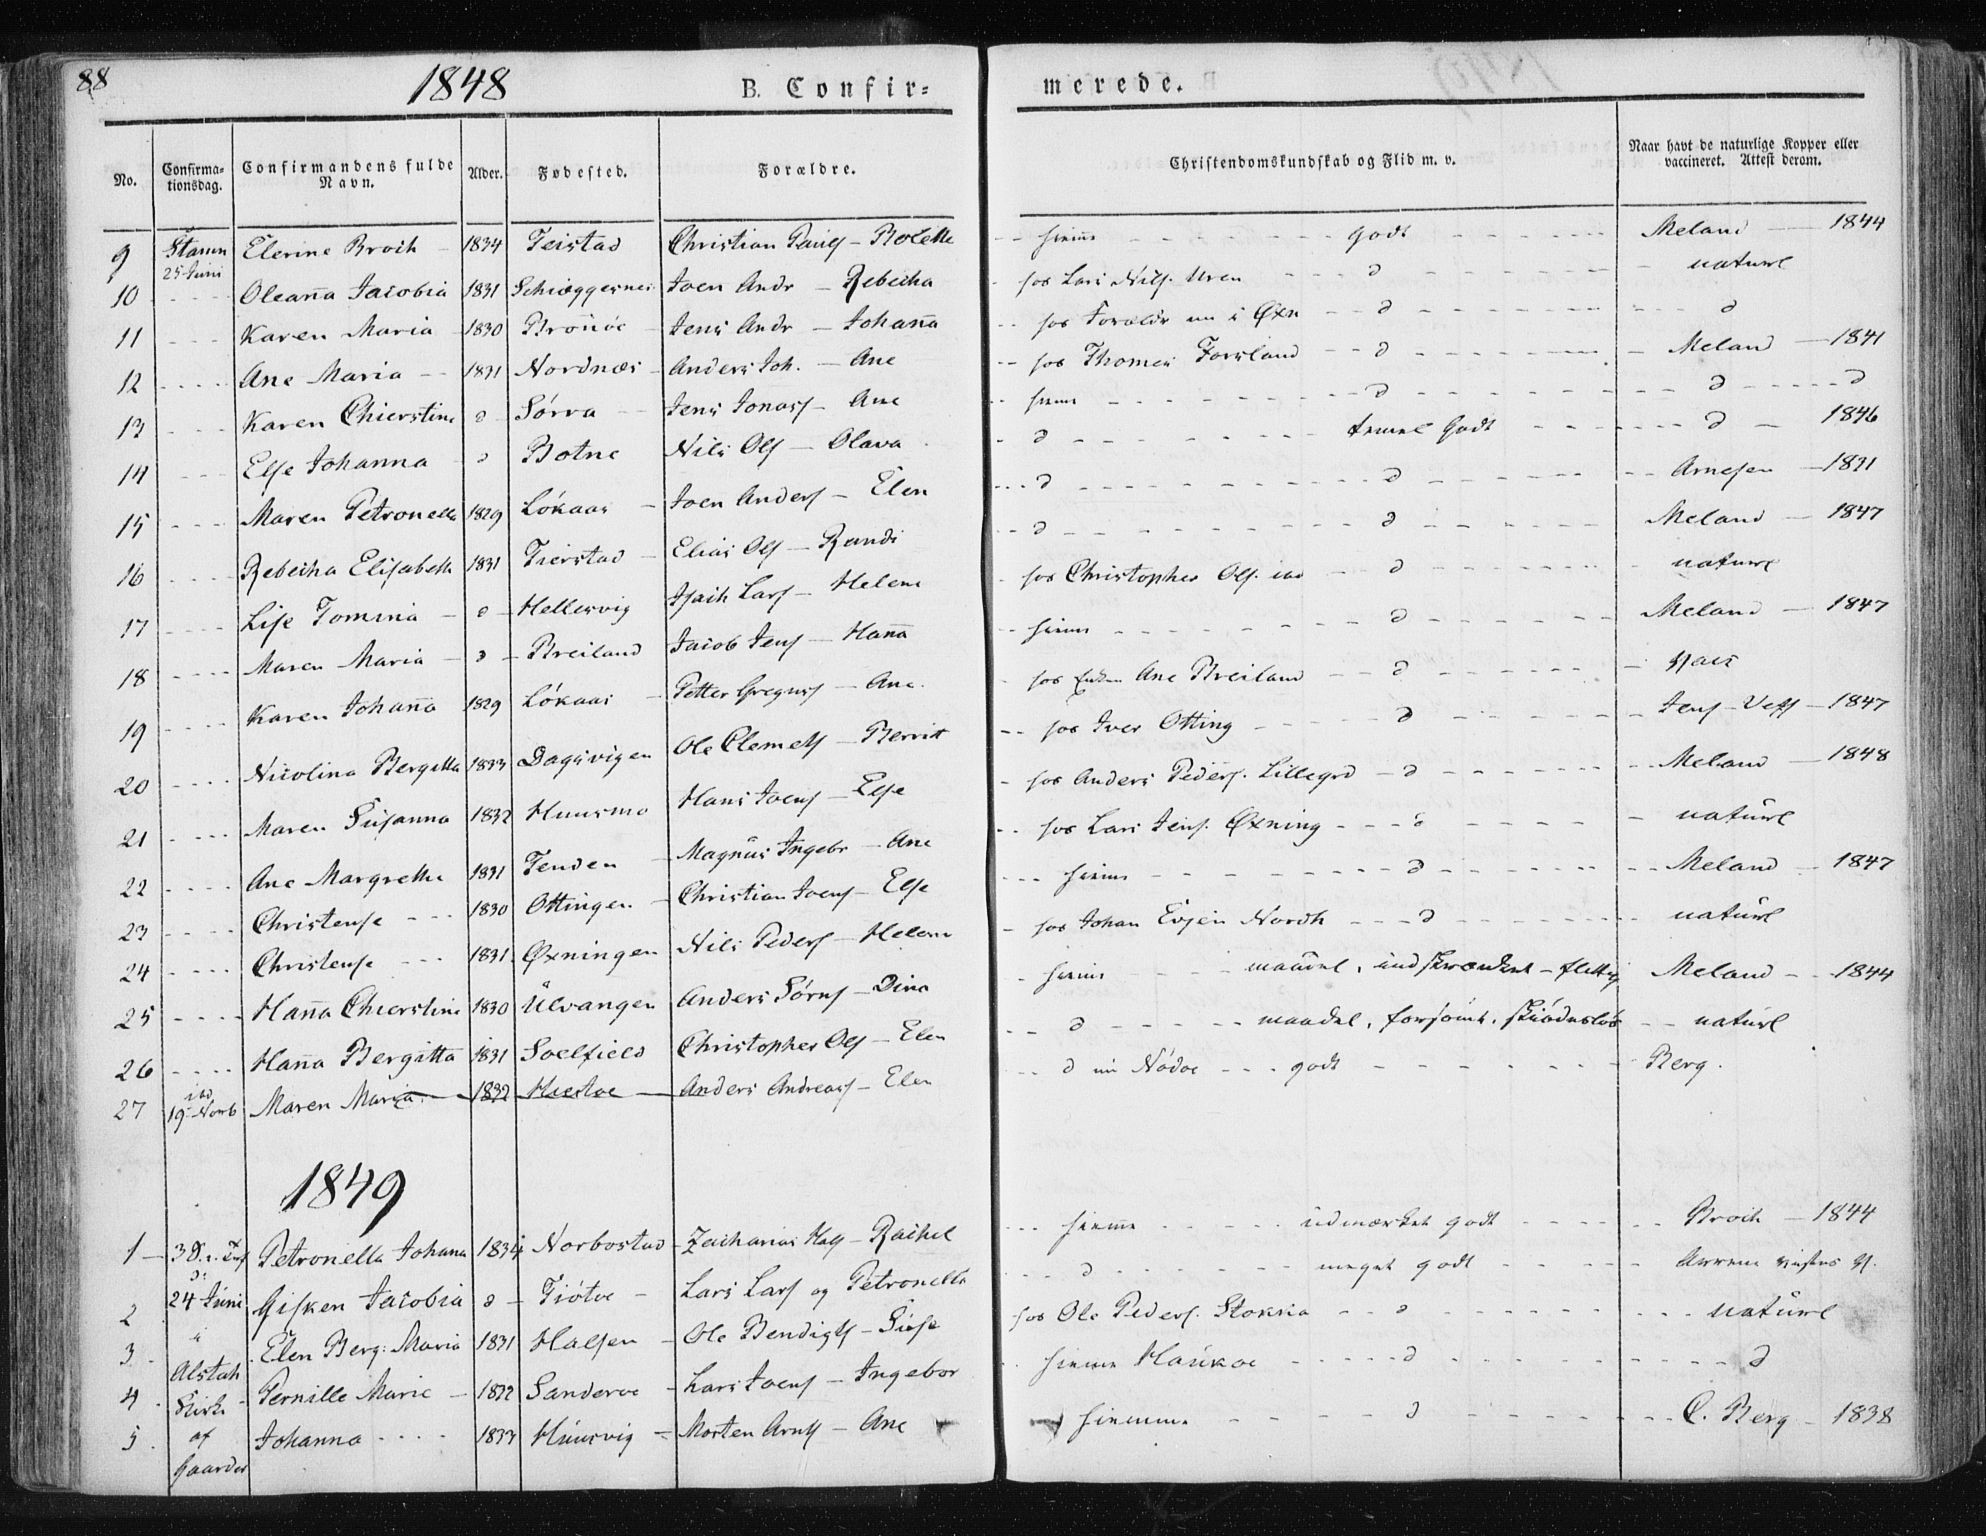 88 1848 B. Confir= merede.
No. Confirma-tionsdag. Confirmandens fulde Navn. Alder. Fødested. Forældre. Christendomskundskab og Flid m. v. Naar havt de naturlige Kopper eller vaccineret. Attest derom.
9 Stamn 25 Juni Elerine Broch - 1834 Teistad Christian Pauls - Bolette hiem godt Meland - 1844
10 Oleana Jacobia 1831 Joen Andr - Rebecha hos Lars Nils. Uren d naturl
11 Karen Maria - 1830 Brønöe Jens Andr - Johana hos Foræld nu i Øxn d d
12 Ane Maria - 1831 Nordnæs - Anders Joh. - Ane hos Thomes Forsland d Meland - 1841
13 Karen Chierstine d Sørra Jens Jonass - Ane hiem d d d
14 Else Johanna d Botne Nils Ols - Olava d temel Godt d - 1846
15 Maren Petronella 1829 Løkaas - Joen Anders - Elen d d Arnesen - 1831
16 Rebecha Elisabeth 1831 Tierstad - Elias Ols - Randi d d Meland - 1847
17 Lise Tomina - d - Hellesvig Isach Lars - Helene hos Christopher Ols. d naturl
18 Maren Maria - d - Breiland Jacob Jens - Hana hiem d Meland - 1847
19 Karen Johana 1829 Løkaas - Petter Gregus - Ane. hos Enken Ane Breiland d
20 Nicolina Bergitta 1833 Dagsvigen Ole Clemets - Berrit hos Iver Otting d Jens - 1847
21 Maren Susanna 1832 Huusmo Hans Joens - Else hos Anders Peders. Lillegrd - d Meland - 1848
22 Ane Margrethe 1831 Tenden - Magnus Ingebr - Ane hos Lars Jens. Øxning d naturl
23 Christense 1830 Ottingen - Christian Joens - Else hiem d Meland - 1847
24 Christense 1831 Øxningen Nils Peders - Helene hos Johan Evjen Nordh d naturl
25 Hana Chierstine 1830 Ulvangen Anders Sørns - Dina hiem maadel. indskrænket - flittig Meland - 1844
26 Hana Bergitta 1831 Soelfield Christopher Ols - Elen d maadel. forsømt. skiødesløs naturl
27 19 Novb Maren Maria 1832 Hiestoe Anders Andreass - Elen d nu Nødoe godt Berg.
1849
1 - 3 Petronella Johana 1834 Norbostad - Zacharias Hals - Rachel hiemme udmærket godt Broch - 1844
2 24 Juni Gisken Jacobia d - Tiøtøe - Lars Lars og Petronella d meget godt
3 i Elen Berg: Maria 1831 Halsen - Ole Bendigts - hos Ole Peders. Stokka d naturl
4 Alstah Kirke Pernille Marie - 1832 Sanderoe - Lars Joens - Ingebor hiemme Haukøe d d
5 af Gaarder Johanna 1833 Huusvig - Morten Arnts - Ane hiemme d C. Berg - 1838